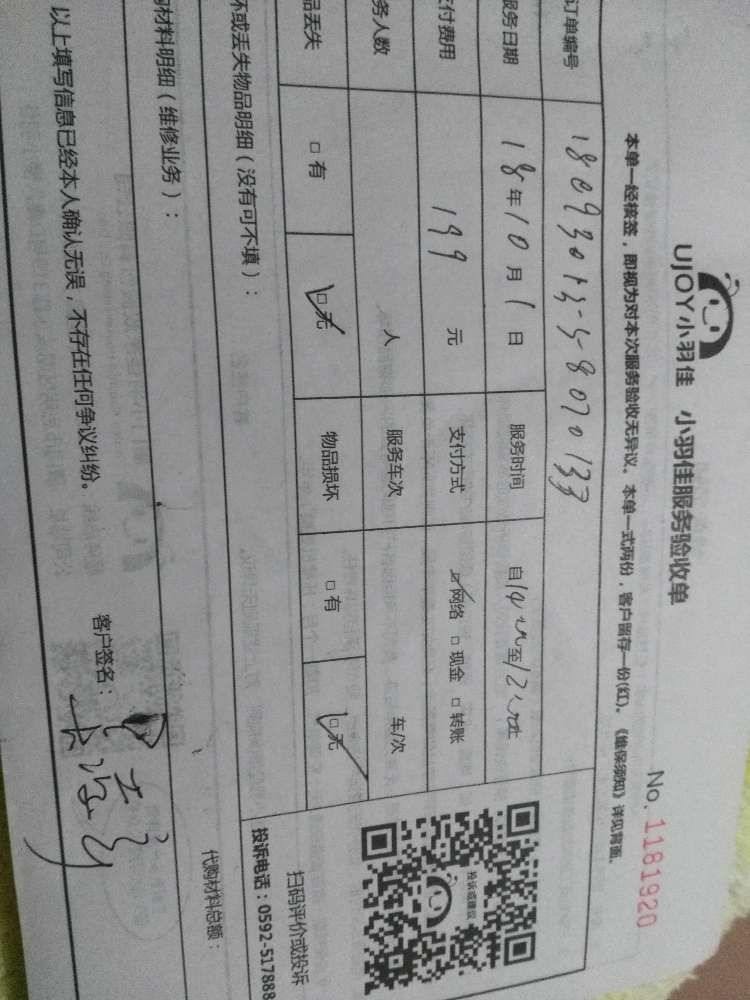 UJOY小羽佳 小羽佳服务验收单
No. 1181920
本单一经核签，即视为对本次服务验收无异议。本单一式两份，客户留存一份(红)。《维保须知》详见背面。
订单编号
服务日期 18年10月1日 服务时间 自 至
支付费用 199元 支付方式 网络 □现金 □转账
务人数 人 服务车次 车/次
品丢失 □有 □无 物品损坏 □有 □无
投诉或建议
扫码评价或投诉
投诉电话：0592-517888
坏或丢失物品明细（没有可不填）：
材料明细（维修业务）：
代购材料总额：
以上填写信息已经本人确认无误，不存在任何争议纠纷。
客户签名：